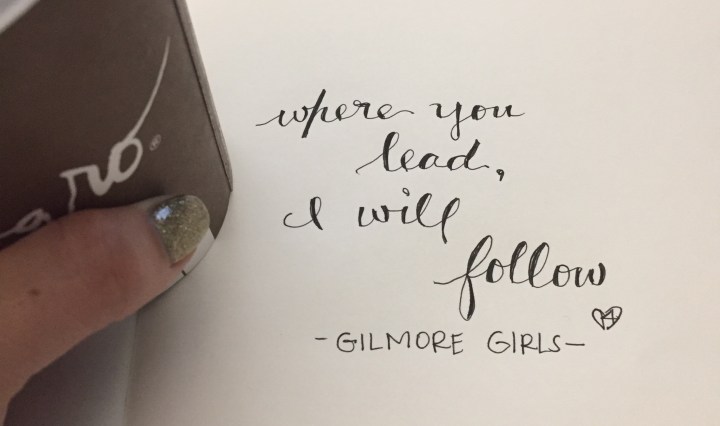 where you
lead,
I will
follow
-GILMORE GIRLS-